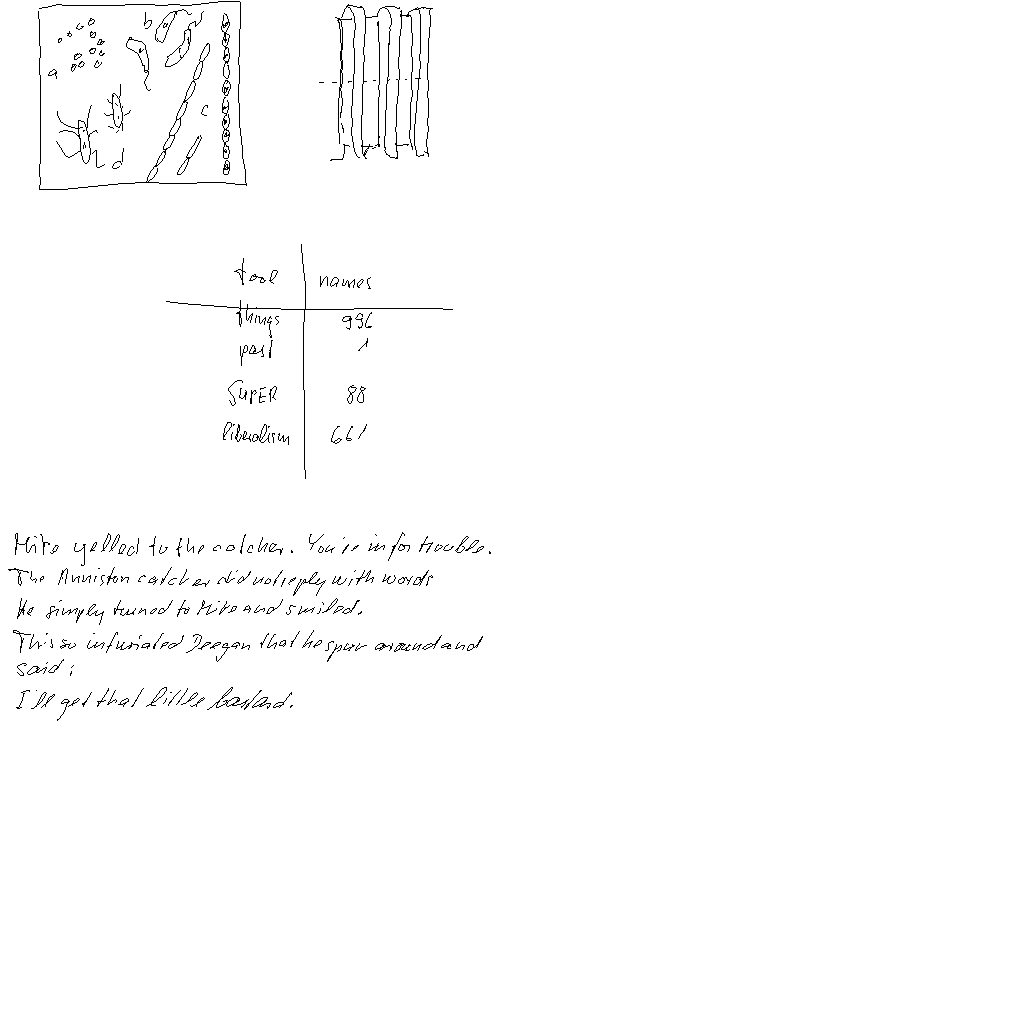 b
a
c
d
tool names
things 996
past 1
SUPER 88
liberalism 661
Mike yelled to the catcher. You're in for trouble.
The Anniston catcher did not reply with words
He simply turned to Mike and smiled.
This so infuriated Deegan that he spun around and
said:
I'll get that little bastard.